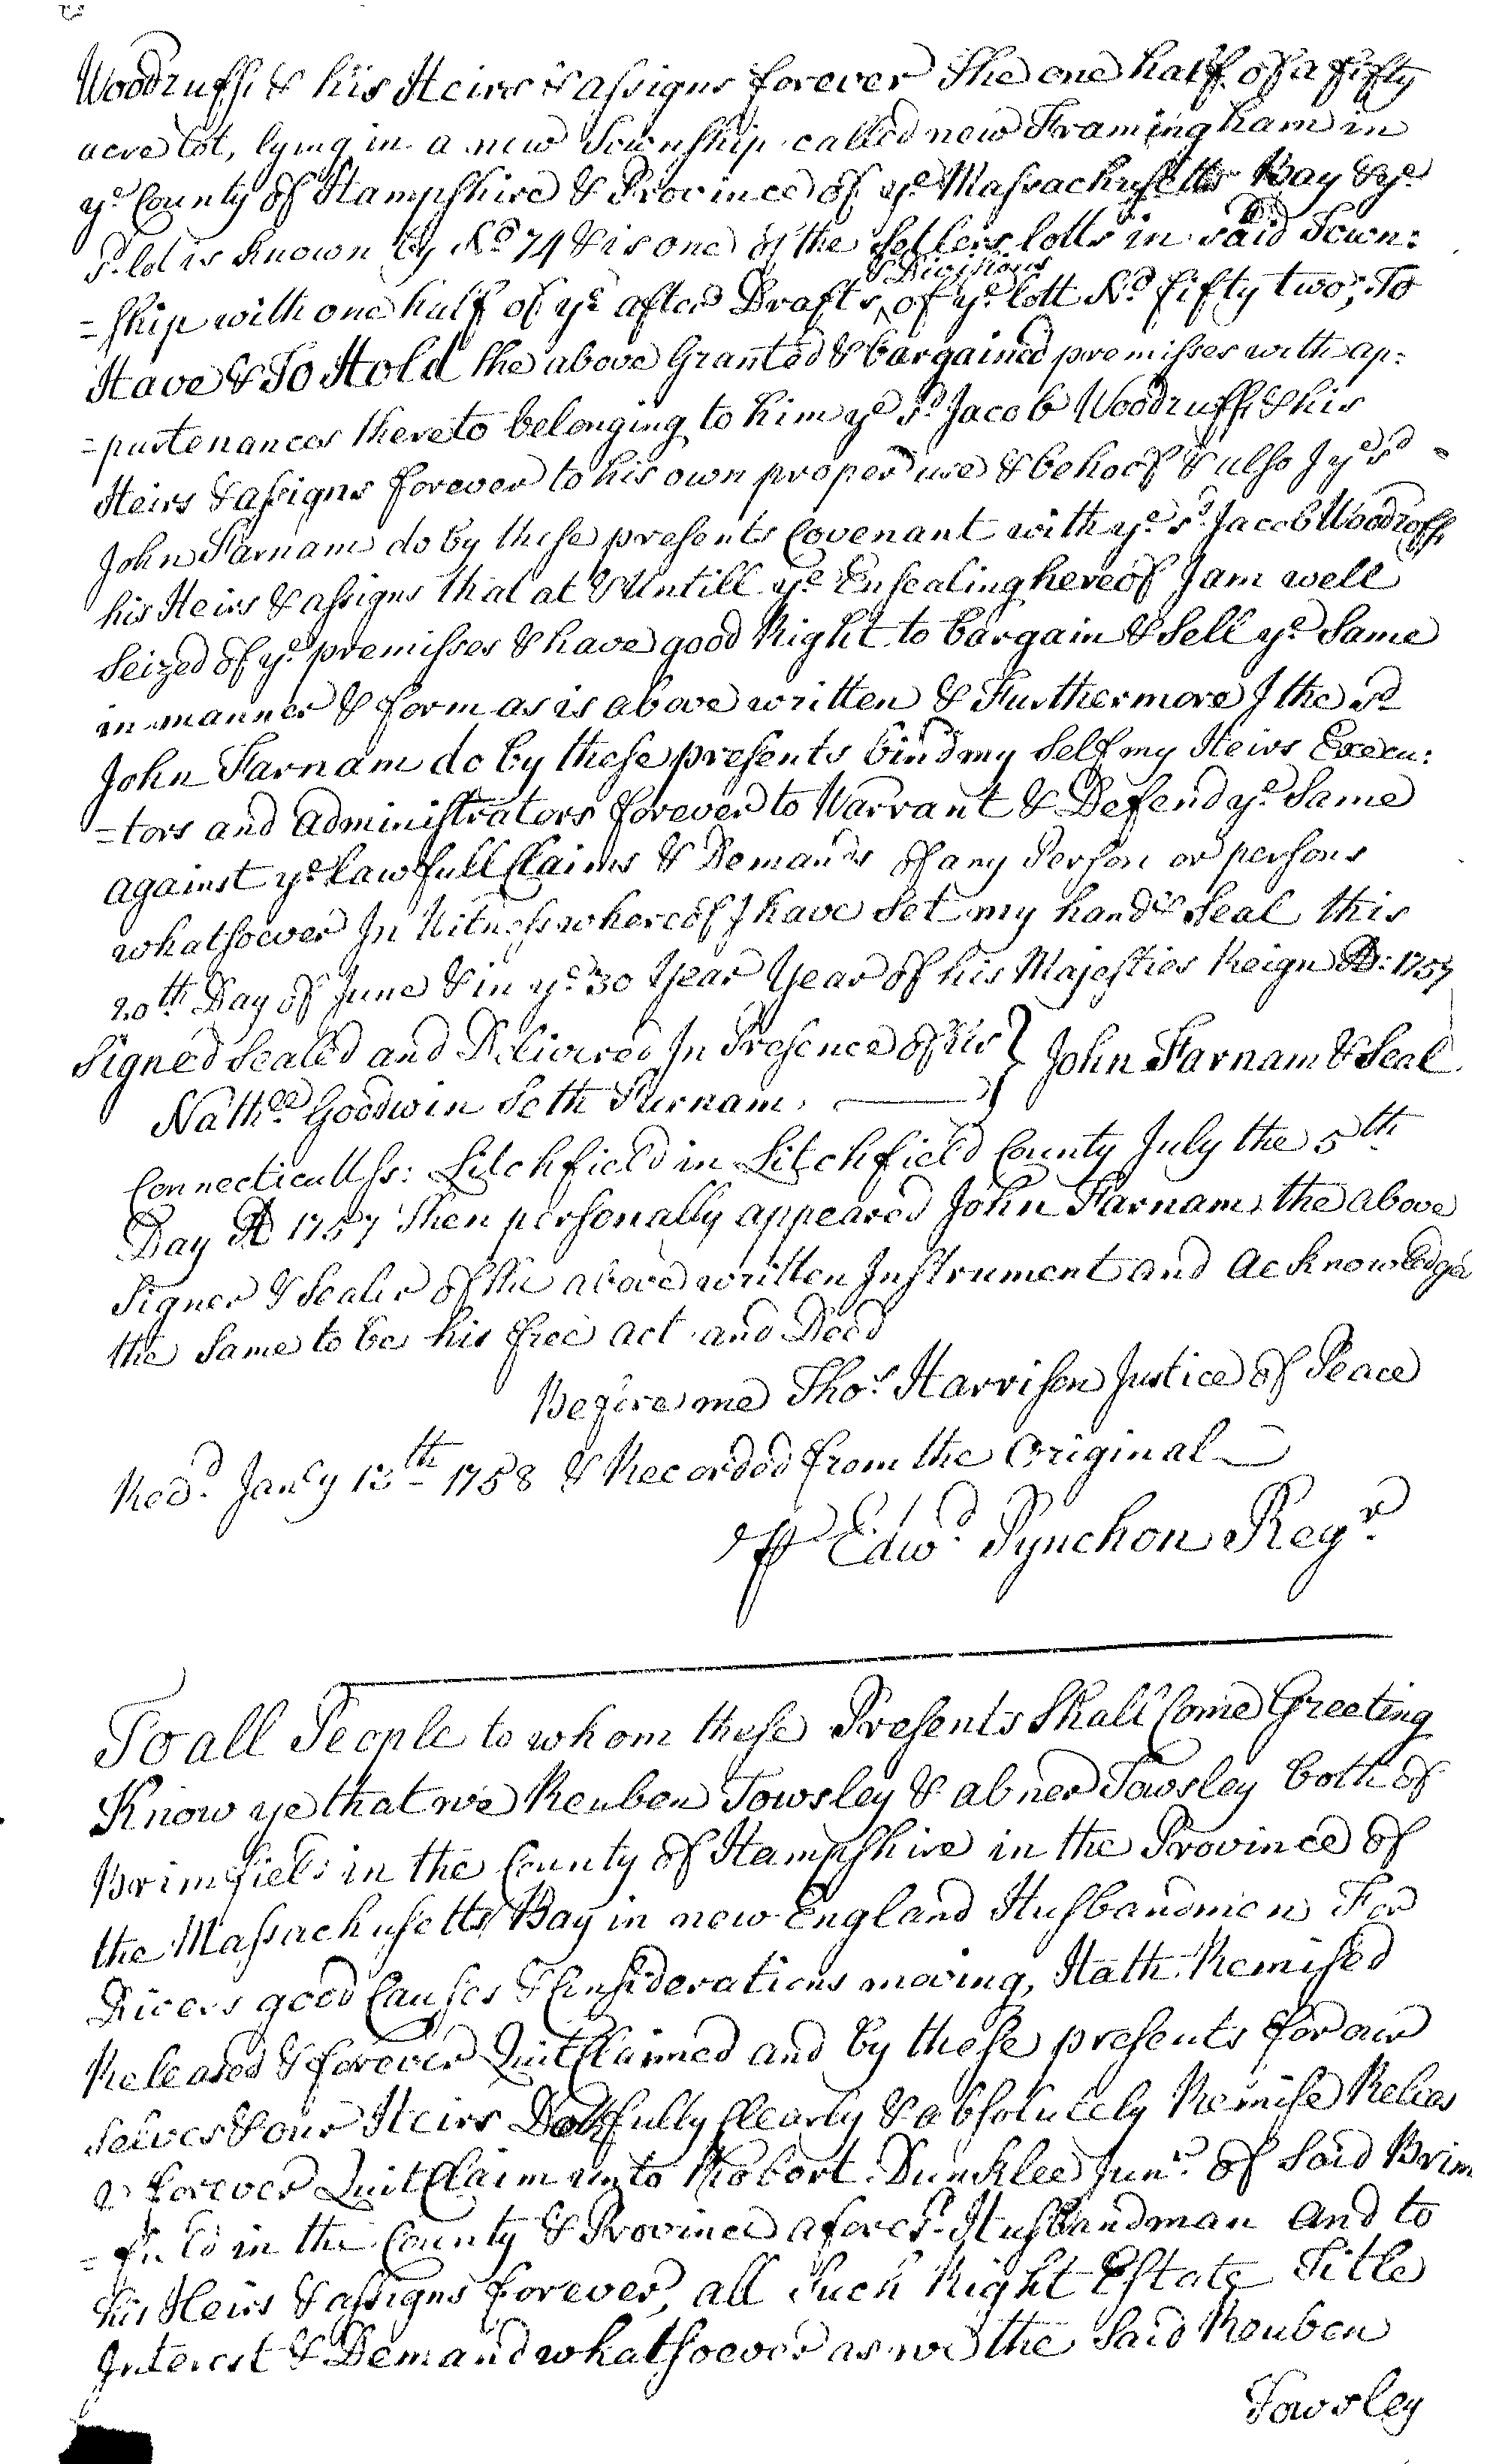 Woodruff, & his Heirs & assigns forever The one half of a fifty
acre lot, lying in a new Township called new Framingham in
ye County of Hampshire & Province of ye Massachusetts Bay & ye
sd. lot is known by No 74 & is one of the Setlers lotts in said Town:
& Divisions
=ship with one half of ye after Drafts ^ of ye lott No fifty two; To
Have & To Hold the above Granted & bargained premisses with ap:
=purtenances thereto belonging to him ye sd Jacob Woodruff, & his
Heirs & assigns forever to his own proper use & behoof & also I ye sd
John Farnam do by these presents Covenant with ye sd Jacob Woodroff,
his Heirs & assigns that at & Untill ye Ensealing hereof I am well
Seized of ye premisses & have good Right to bargain & Sell ye Same
in manner & form as is above written & Furthermore I the sd
John Farnam do by these presents bind my Self my Heirs Execu:
=tors and administrators forever to Warrant & Defend ye Same
against ye Lawfull Claims & Demands of any Person or persons
whatsoever In Witness whereof I have Set my hand & Seal this
20th Day of June & in ye 30 Year Year of his Majesties Reign AD: 1757
Signed Sealed and Delivered In Presence of us } John Farnam & Seal
Nathll Goodwin Seth Furnam.
Connecticutt ss: Litchfield in Litchfield County July the 5th
Day AD 1757 Then personally appeared John Farnam, the above
Signer & Sealer of the above written Instrument and acknowledged
the Same to be his free act and Deed
Before me Thos Harrison Justice of Peace
Recd. Jany 13th 1758 & Recorded from the Original
pr Edwd Pynchon Regr.
To all People to whom these Presents Shall Come Greeting
Know ye that we Reuben Towsley & abner Towsley both of
Brimfield in the County of Hampshire in the Province of
the Massachusetts Bay in new England Husbandmen For
Divers good Causes & Considerations moving, Hath Remised
Released & forever QuitClaimed and by these presents for our
selves & our Heirs Doth fully Clearly & absolutely Remise Releas
& forever QuitClaim unto Robort Duncklee Junr. of Said Brim
=field in the County & Province aforesd. Husbandman and to
his Heirs & assigns forever, all Such Right Estate Title
Interest & Demand whatsoever as we the Said Reuben
Towsley